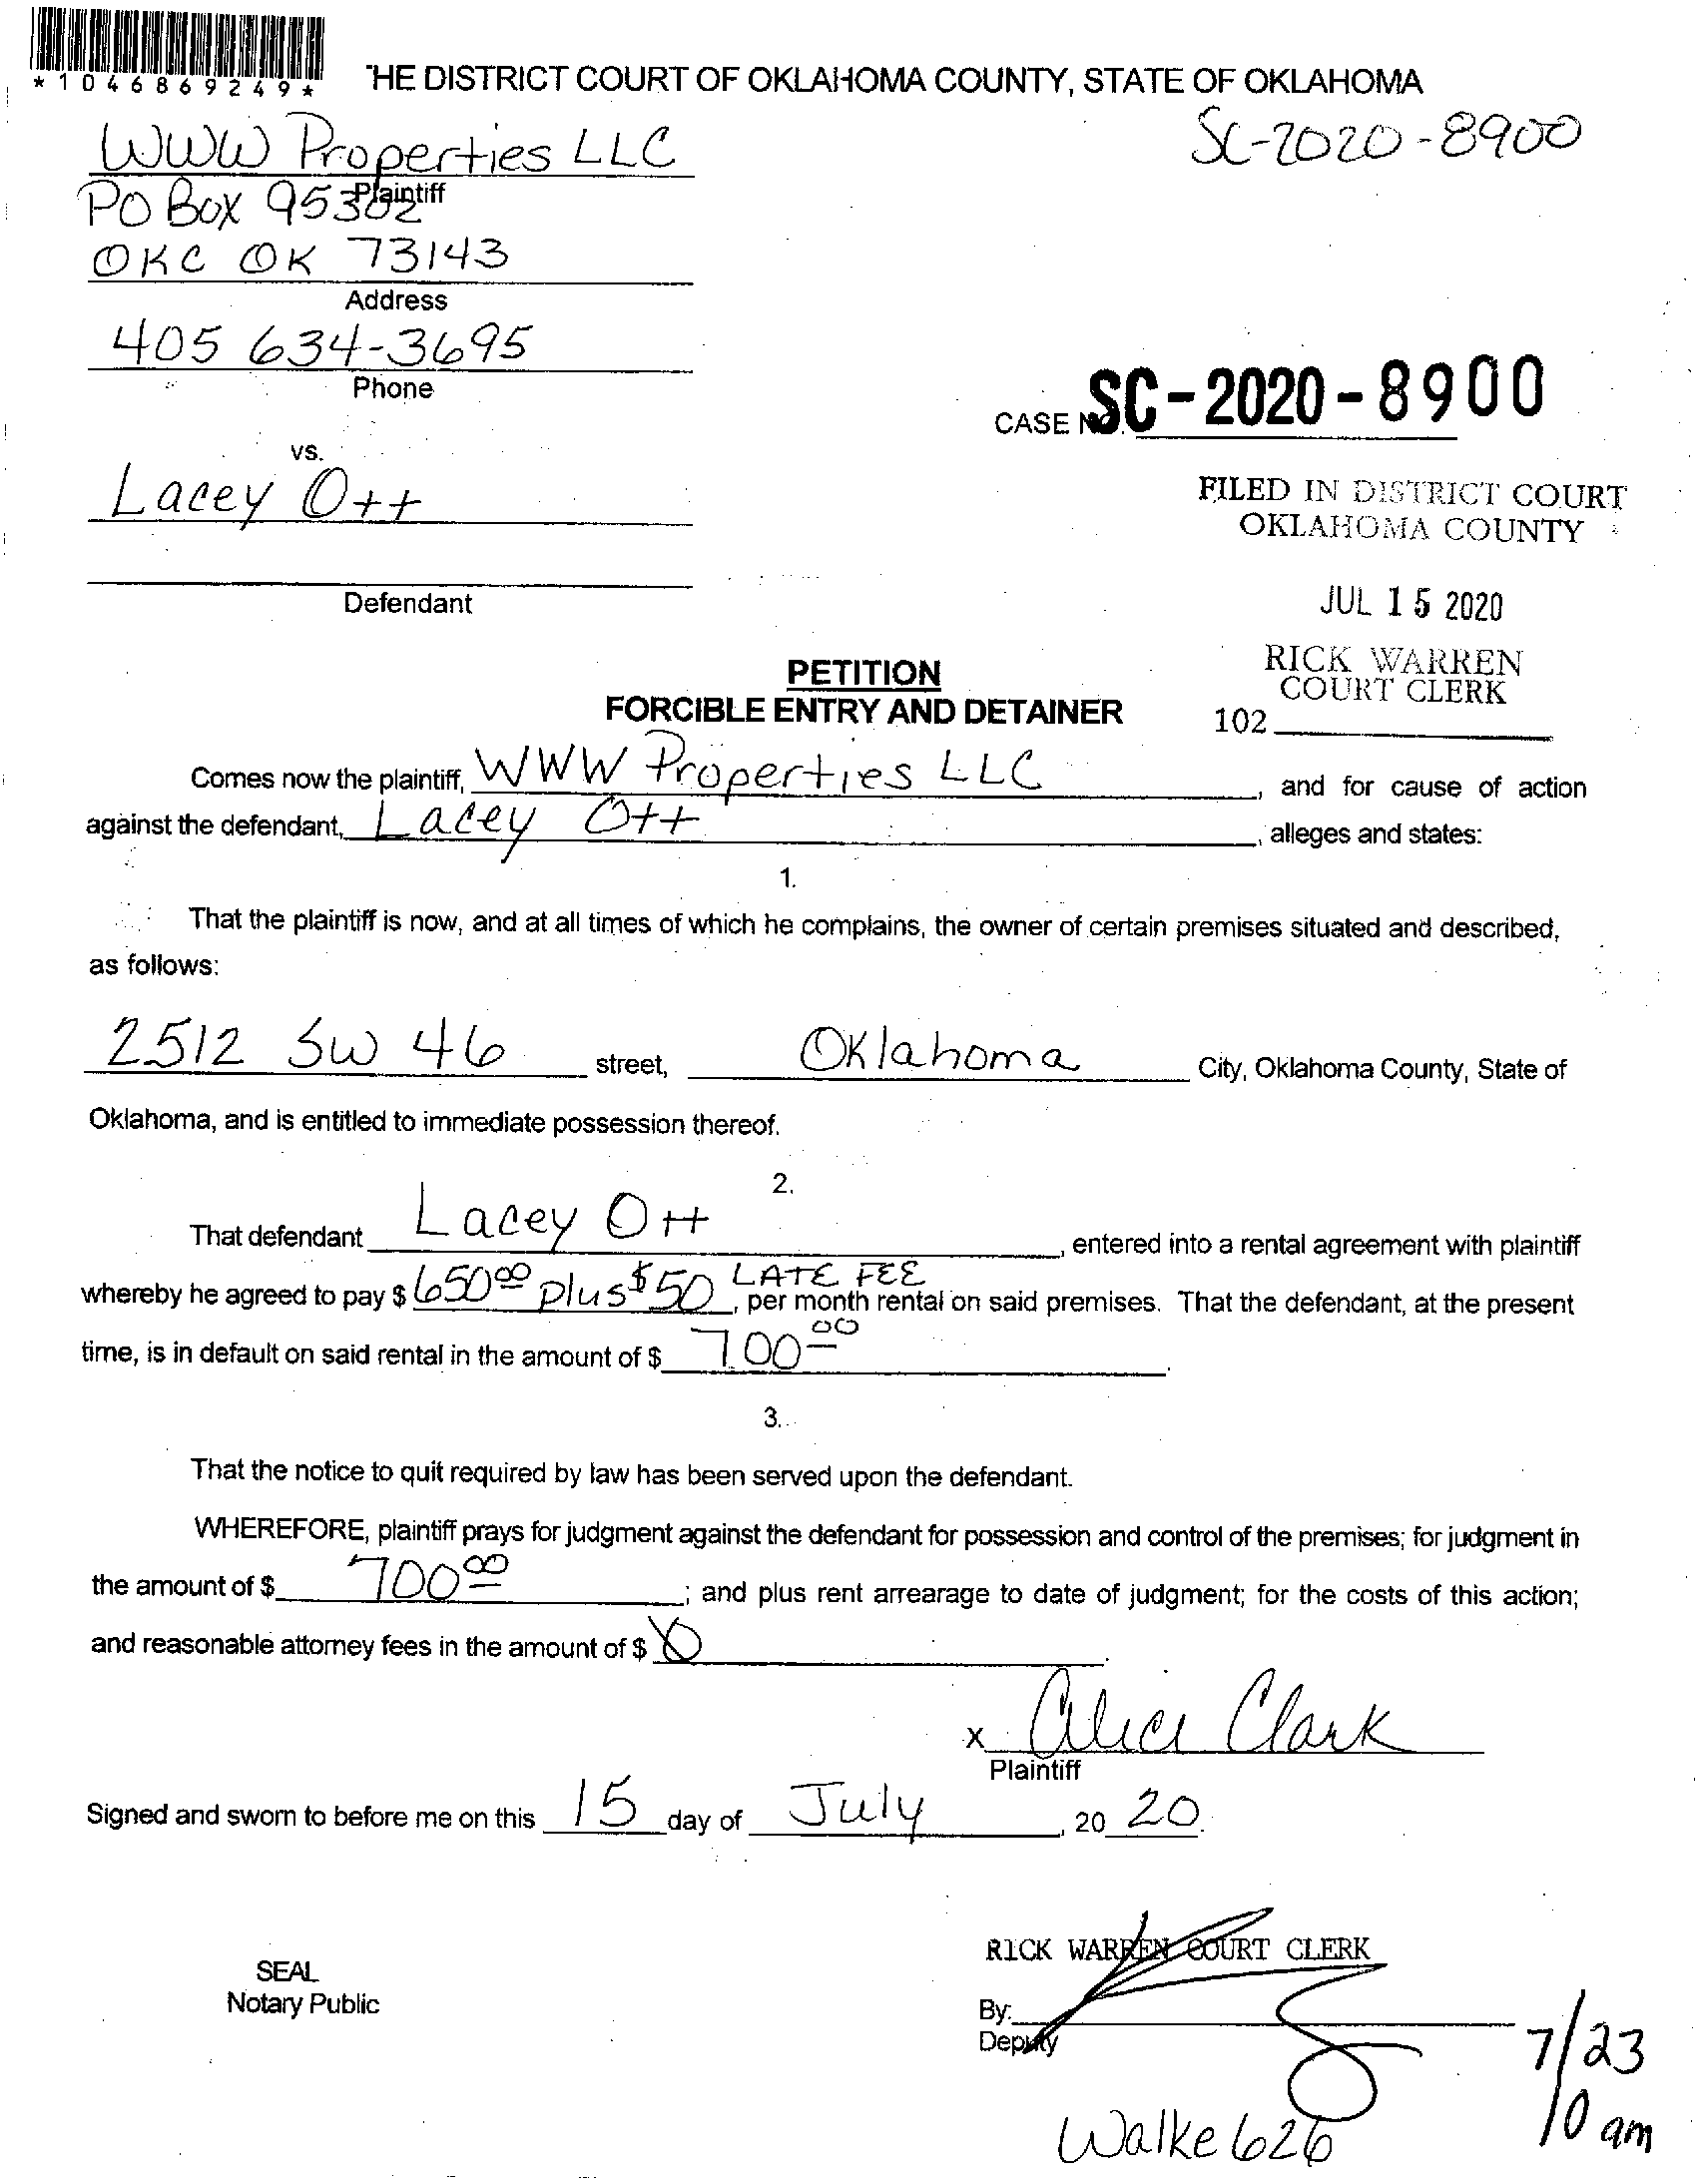 *1046869249*
THE DISTRICT COURT OF OKLAHOMA COUNTY, STATE OF OKLAHOMA
WWW Properties LLC
SC-2020-8900
Plaintiff
PO Box 95302
OKC OK 73143
Address
405 634-3695
Phone
CASE NO. SC-2020-8900
vs.
Lacey Ott
FILED IN DISTRICT COURT
OKLAHOMA COUNTY
Defendant
JUL 15 2020
RICK WARREN
COURT CLERK
102
PETITION
FORCIBLE ENTRY AND DETAINER
Comes now the plaintiff, WWW Properties LLC, and for cause of action
against the defendant, Lacey Ott, alleges and states:
1.
That the plaintiff is now, and at all times of which he complains, the owner of certain premises situated and described,
as follows:
2512 SW 46 street, Oklahoma City, Oklahoma County, State of
Oklahoma, and is entitled to immediate possession thereof.
2.
That defendant Lacey Ott, entered into a rental agreement with plaintiff
whereby he agreed to pay $ 650.00 plus $50 LATE FEE, per month rental on said premises. That the defendant, at the present
time, is in default on said rental in the amount of $ 700.00.
3.
That the notice to quit required by law has been served upon the defendant.
WHEREFORE, plaintiff prays for judgment against the defendant for possession and control of the premises; for judgment in
the amount of $ 700.00; and plus rent arrearage to date of judgment; for the costs of this action;
and reasonable attorney fees in the amount of $ 0.
x Alice Clark
Plaintiff
Signed and sworn to before me on this 15 day of July, 20 20.
RICK WARREN COURT CLERK
SEAL
Notary Public
By:
Deputy
7/23
10 am
Walke 626